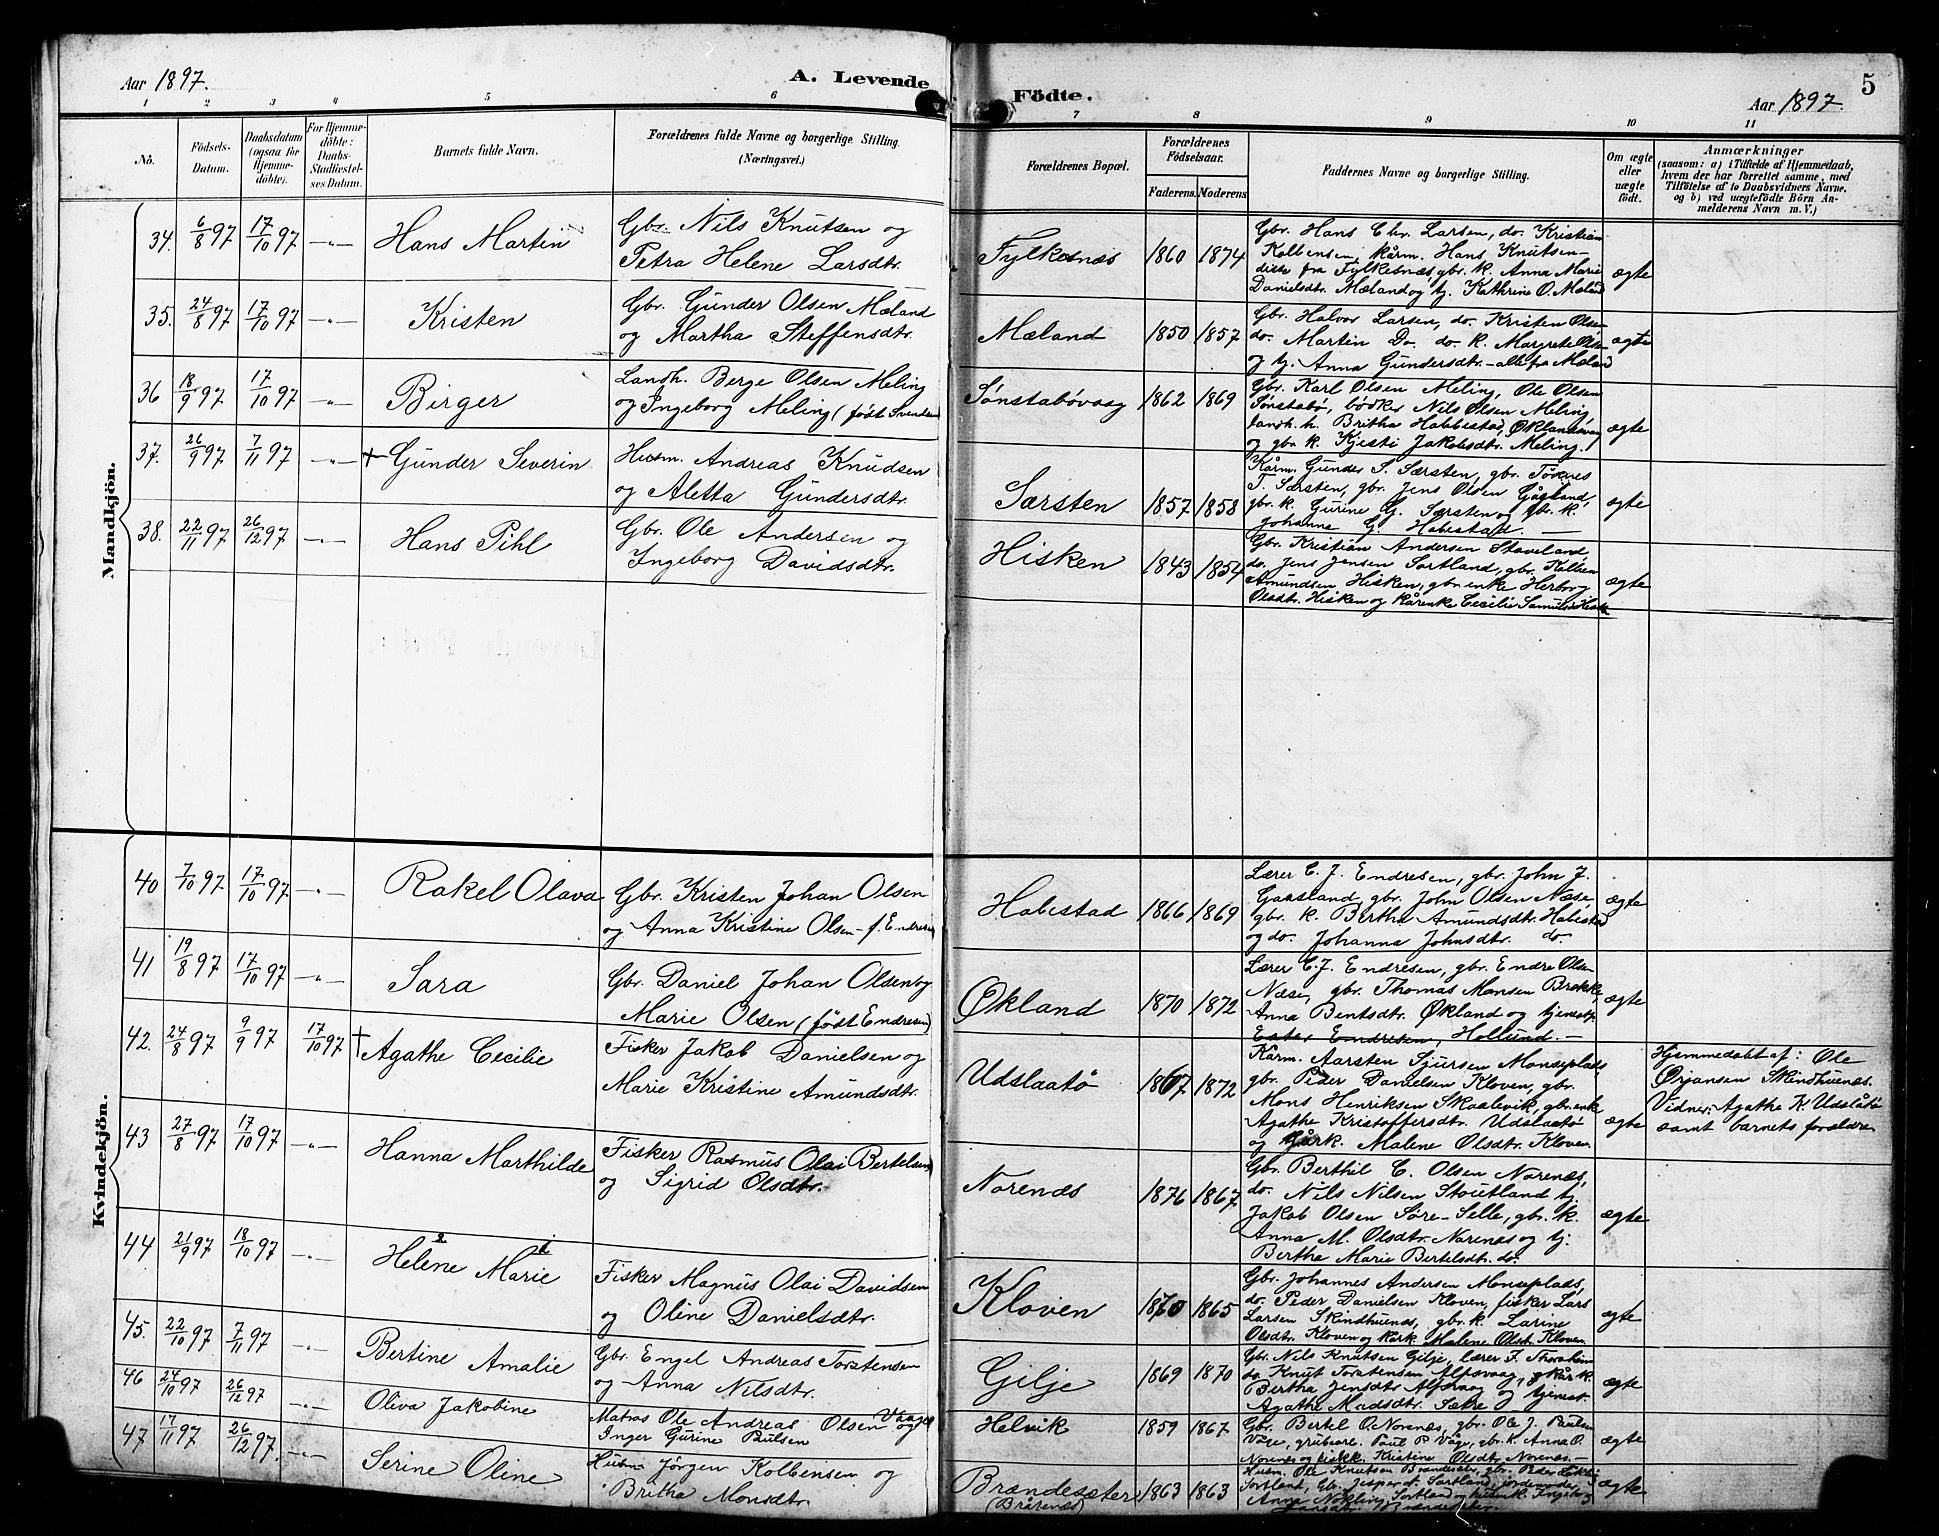 Aar 1897.
A. Levende
Födte.
Aar 1897.
5
1 2 3 4 5 6 7 8 9 10 11
No.
Födsels-Datum.
Daabsdatum (ogsaa for Hjemmedöbte).
For Hjemmedöbte: Daabs-Stadfæstelses Datum.
Barnets fulde Navn.
Forældrenes fulde Navne og borgerlige Stilling.
(Næringsvei.)
Forældrenes Bopæl.
Forældrenes Födselsaar.
Faderens. Moderens.
Faddernes Navne og borgerlige Stilling.
Om ægte eller uægte født.
Anmærkninger
(saasom: a) i Tilfælde af Hjemmedaab, hvem der har forrettet samme, med Tilføielse af to Daabsvidners Navne, og b) ved uægtefödte Börn Anmelderens Navn m. V.)
Mandkjön.
34. 6/8 97 17/10 97 -"- Hans Martin
Gbr. Nils Knutsen og
Petra Helene Larsdtr.
Fylkesnæs 1860 1874
Gbr. Hans Chr. Larsen, do. Kristian
Kolbensen, kårm. Hans Knutsen -
disse fra Fylkesnæs, gbr. k. Anna Marie
Danielsdtr. Mæland og tj. Kathrine O. Mæland
ægte
35. 24/8 97 17/10 97 -"- Kristen
Gbr. Gunder Olsen Mæland
og Martha Steffensdtr.
Mæland 1850 1857
Gbr. Halvor Larsen, do. Kristen Olsen
do. Martin Do. do. k. Margrete Olsen
og tj. Anna Gundersdtr. - alle fra Mæland
ægte
36 18/9 97 17/10 97 -"- Birger
Landh. Berge Olsen Meling
og Ingeborg Meling (født Svendsen
Sønstabøvaag 1862 1869
Gbr. Karl Olsen Meling, Ole Olsen
Sønstabø, bødker Nils Olsen Meling,
landh. h. Britha Habbestad, Øklandsvaag
og gbr. k. Kjisti Jakobsdtr. Meling.
ægte
37. 26/9 97 7/11 97 -"- + Gunder Severin
Husm. Andreas Knudsen
og Aletta Gundersdtr.
Særsten 1857 1858
Kårm. Gunder S. Særsten, gbr. Tønnes
T. Særsten, gbr. Jens Olsen Gåsland,
gbr. k. Gurine G. Særsten og gbr. k.
Johanna G. Habestad. -
ægte
38. 22/11 97 26/12 97 -"- Hans Pihl
Gbr. Ole Andersen og
Ingeborg Davidsdtr.
Hisken 1843 1854
Gbr. Kristian Andersen Staveland,
do. Jens Jensen Sortland, gbr. Kolben
Amundsen Hisken, gbr. enke Herborg
Olsdtr. Hisken og kårenke Cecilie
ægte
Kvindekjön.
40 7/10 97 17/10 97 -"- Rakel Olava
Gbr. Kristen Johan Olsen
og Anna Kristine Olsen - f. Endresen
Habestad 1866 1869
Lærer C. J. Endresen, gbr. John J.
Gaasland, gbr. John Olsen Næse,
gbr. k. Bertha Amundsdtr. Habestad
og do. Johanna Johnsdtr. do.
ægte
41 19/8 97 17/10 97 -"- Sara
Gbr. Daniel Johan Olsen og
Marie Olsen (født Endresen)
Økland 1870 1872
Lærer C. J. Endresen, gbr. Endre Olsen
Næse, gbr. Thomas Monsen Brekke,
Anna Bentsdtr. Økland og tjenest.
Ester Endresen, Hollund. -
ægte
42. 24/8 97 9/9 97 17/10 97 + Agathe Cecilie
Fisker Jakob Danielsen og
Marie Kristine Amundsdtr.
Udslaatø 1867 1872
Kårm. Aarsten Sjursen Monseplads
gbr. Peder Danielsen Kloven, gbr.
Mons Henriksen Skaalevik, gbr. enke
Agathe Kristoffersdtr. Udslaatø
og Malene Olsdtr. Kloven
ægte
Hjemmedøbt af: Ole
Ørjansen Skindhuenæs.
Vidner: Agathe K. Udslåtø
samt barnets forældre
43 27/8 97 17/10 97 -"- Hanna Marthilde
Fisker Rasmus Olai Bertelsen
og Sigrid Olsdtr.
Norenæs 1876 1867
Gbr. Berthil C. Olsen Norenæs,
do. Nils Nilsen Stoutland tj.
Jakob Olsen Søre-Selle, gbr. k.
Anna M. Olsdtr. Norenæs og tj.
Bertha Marie Bertelsdtr. do.
ægte
44. 21/9 97 18/10 97 -"- Helene Marie
2 1
Fisker Magnus Olai Davidsen
og Oline Danielsdtr.
Kloven 1860 1865
Gbr. Johannes Andersen Monseplads,
do. Peder Danielsen Kloven, fisker Lars
Larsen Skindhuenæs, gbr. k. Larine
Olsdtr. Kloven og kårk. Malene Olsdt. Kloven
ægte
45. 22/10 97 7/11 97 -"- Bertine Amalie
Gbr. Engel Andreas Torstensen
og Anna Nilsdtr.
Gilje 1869 1870
Gbr. Nils Knutsen Gilje, lærer J.
do. Knut Torstensen Alfsvaag, kår k.
Bertha Jensdtr. Alfsvaag og tjenest.
Agathe Madsdtr. Sætre
ægte
46 24/10 97 26/12 97 -"- Oliva Jakobine
Matros Ole Andreas Olsen Vaage og
Inger Gurine Paulsen
Helvik 1859 1867
Gbr. Bertel O. Norenæs, gbr. Ole J. Paulsen
Våge, grubearb. Paul P. Våge, gbr. k. Anna O.
Norenæs og fiskk. Kristine Olsdtr. Norenæs. -
ægte
47 17/11 97 26/12 97 -"- Serine Oline
Husm. Jørgen Kolbensen og
Britha Monsdtr.
Brændesæter
(Bråtenæs)
1863 1863
Husm. Ole Knutsen Brændesæter, gbr. Peder
Sortland, gbr. Jesper Sortland, jordemoder
Anna Nökling, Sortland og husmk. Ingeborg
ægte